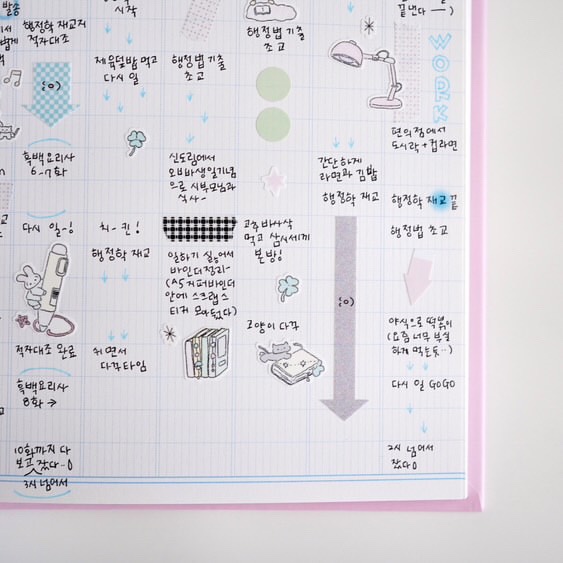 발송
행정학 재교지
적자대조
흑백요리사
6-7화
다시 일-!
적자대조 완료
흑백요리사
8화 →
10화까지 다
보고 잤다-0
3시 넘어서
시작
제육덮밥 먹고
다시 일
치-킨!
행정학 재교
쉬면서
다꾸타임
행정법 기출
초교
신도림에서
오빠생일기념
으로 시부모님과
식사-
일하기 싫어서
바인더정리-
(A5 지퍼바인더
안에 스크랩 스
티커 모아뒀다)
행정법 기출
초교
고추바사삭
먹고 삼시세끼
본방!
고양이 다꾸
간단하게
라면과 김밥
행정학 재교
끝낸다 —)
WORK
편의점에서
도시락+컵라면
행정학 재교 끝
행정법 초교
야식으로 떡볶이
(요즘 너무 부실
하게 먹는듯..)
다시 일 GOGO
2시 넘어서
잤다0